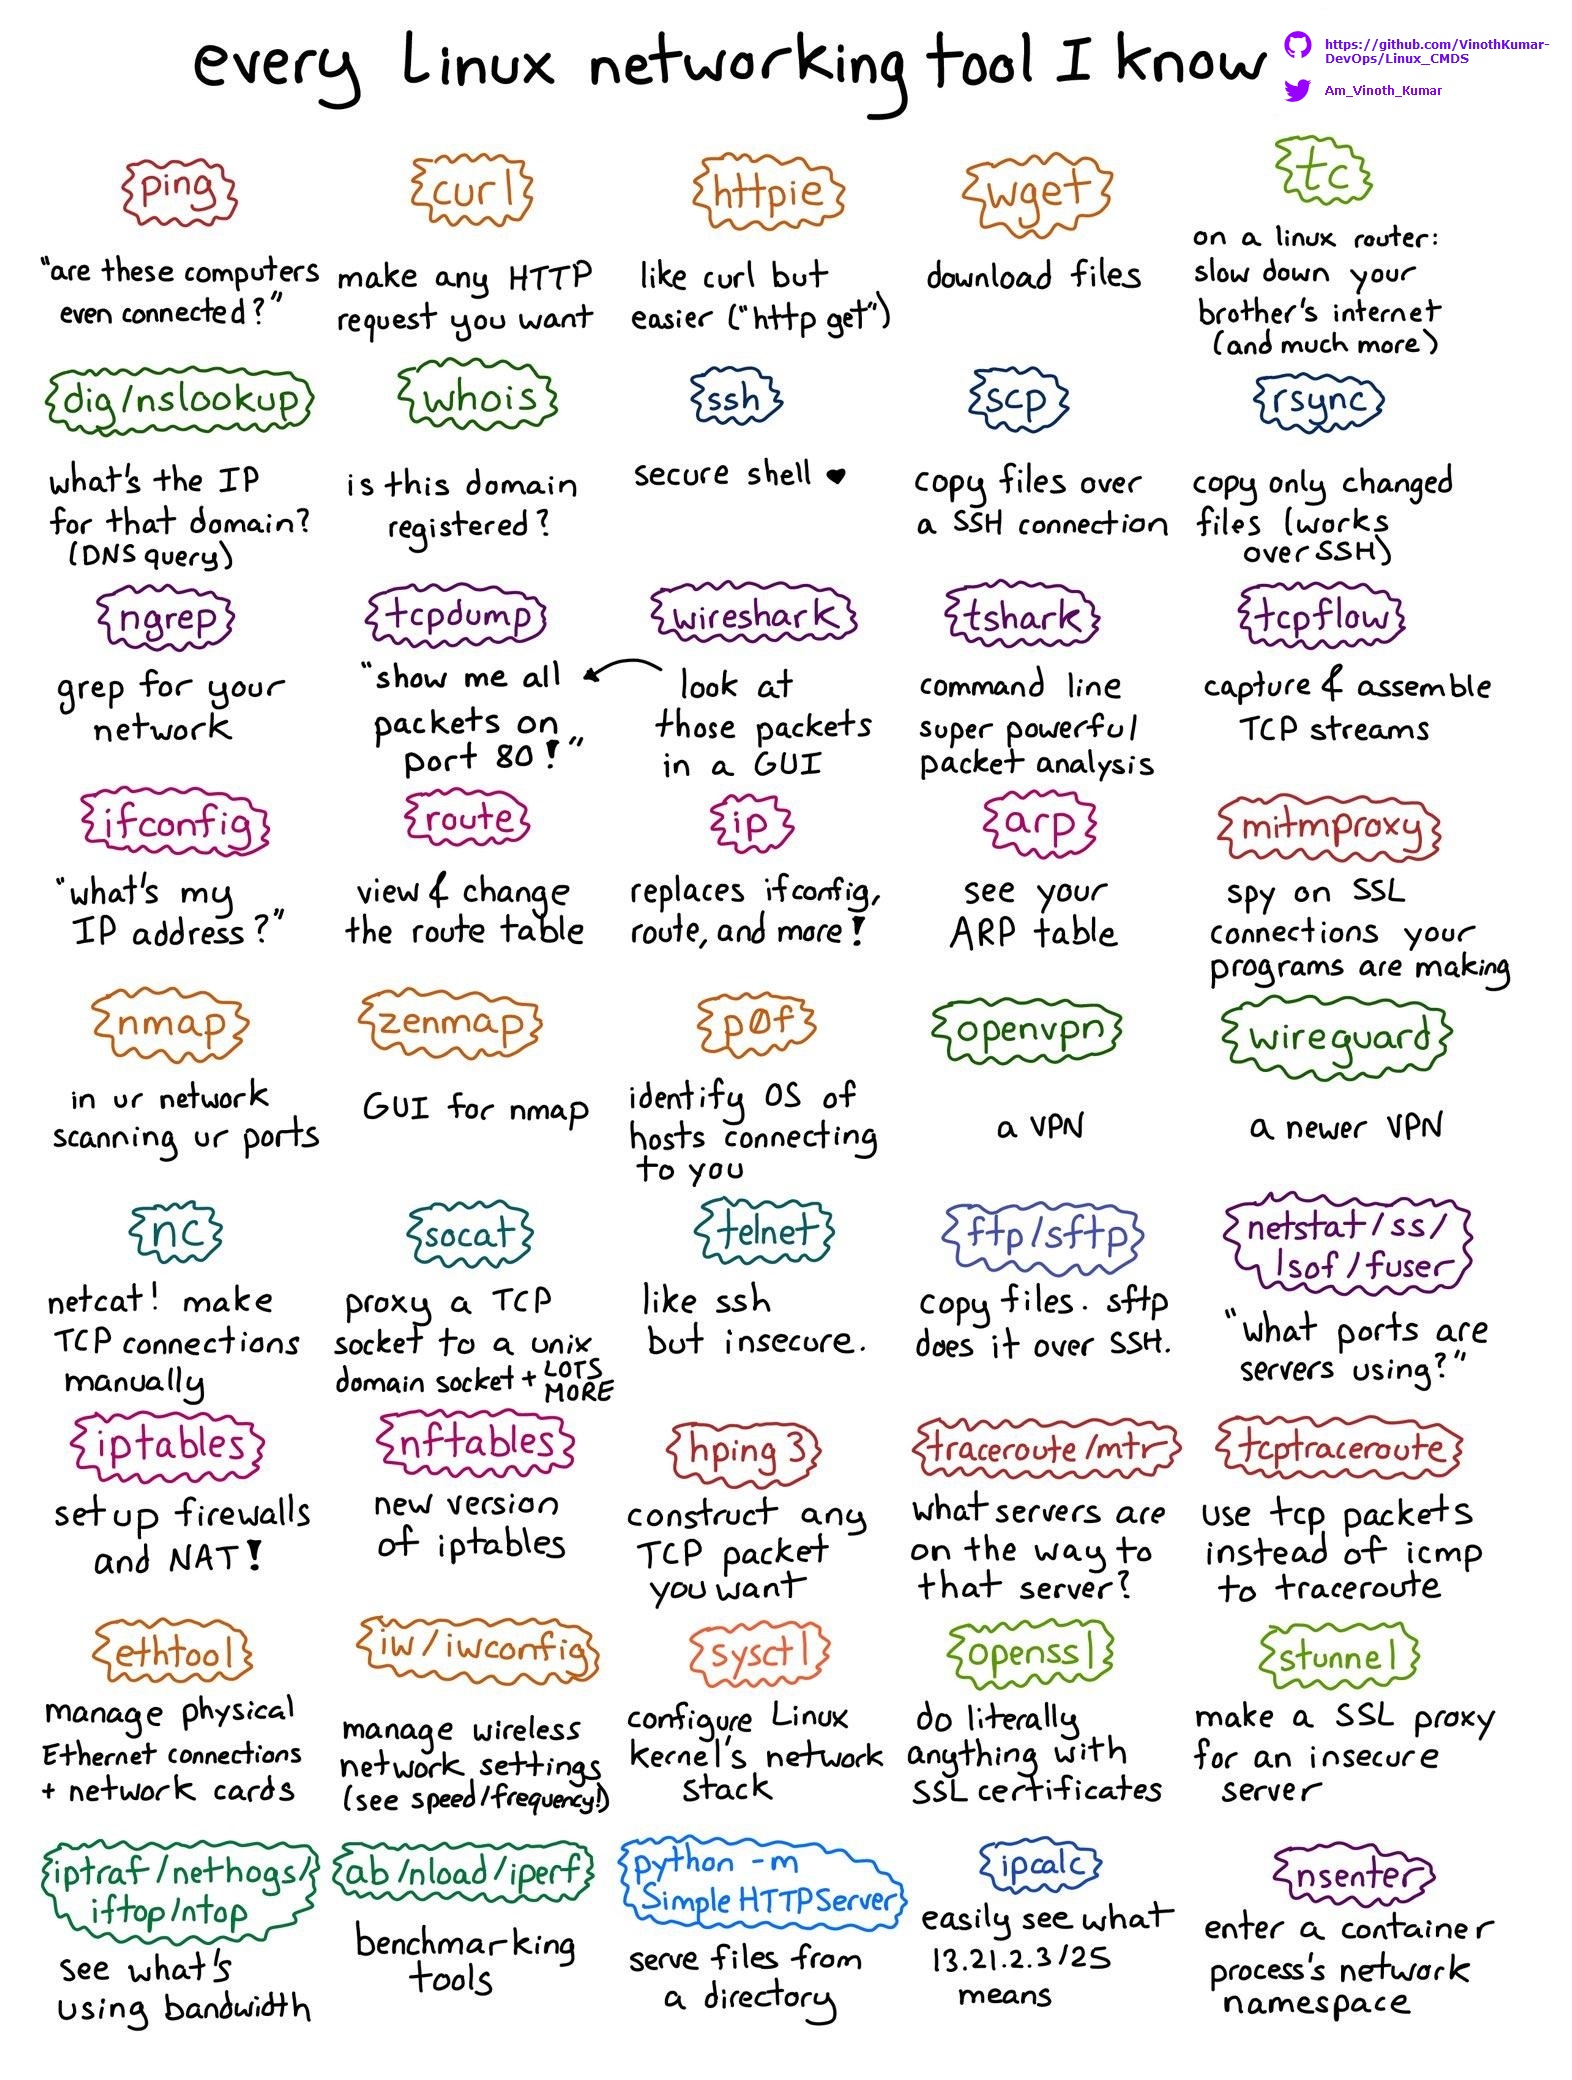 every Linux networking tool I know
https://github.com/VinothKumar-
DevOps/Linux_CMDS
Am_Vinoth_Kumar
ping
"are these computers
even connected?"
curl
make any HTTP
request you want
httpie
like curl but
easier ("http get")
wget
download files
tc
on a linux router:
slow down your
brother's internet
(and much more)
dig/nslookup
what's the IP
for that domain?
(DNS query)
whois
is this domain
registered?
ssh
secure shell ♥
scp
copy files over
a SSH connection
rsync
copy only changed
files (works
over SSH)
ngrep
grep for your
network
tcpdump
"show me all
packets on
port 80!"
wireshark
look at
those packets
in a GUI
tshark
command line
super powerful
packet analysis
tcpflow
capture & assemble
TCP streams
ifconfig
"what's my
IP address?"
route
view & change
the route table
ip
replaces ifconfig,
route, and more!
arp
see your
ARP table
mitmproxy
spy on SSL
connections your
programs are making
nmap
in ur network
scanning ur ports
zenmap
GUI for nmap
p0f
identify OS of
hosts connecting
to you
openvpn
a VPN
wireguard
a newer VPN
nc
netcat! make
TCP connections
manually
socat
proxy a TCP
socket to a unix
domain socket + LOTS
MORE
telnet
like ssh
but insecure.
ftp/sftp
copy files. sftp
does it over SSH.
netstat/ss/
lsof/fuser
"what ports are
servers using?"
iptables
set up firewalls
and NAT!
nftables
new version
of iptables
hping3
construct any
TCP packet
you want
traceroute/mtr
what servers are
on the way to
that server?
tcptraceroute
use tcp packets
instead of icmp
to traceroute
ethtool
manage physical
Ethernet connections
+ network cards
iw/iwconfig
manage wireless
network settings
(see speed/frequency!)
sysctl
configure Linux
kernel's network
stack
openssl
do literally
anything with
SSL certificates
stunnel
make a SSL proxy
for an insecure
server
iptraf/nethogs/
iftop/ntop
see what's
using bandwidth
ab/nload/iperf
benchmarking
tools
python -m
SimpleHTTPServer
serve files from
a directory
ipcalc
easily see what
13.21.2.3/25
means
nsenter
enter a container
process's network
namespace